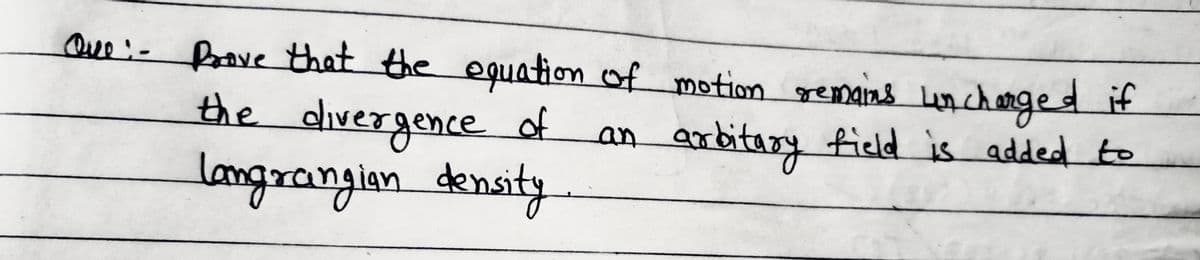 Que :- Prove that the equation of motion remains unchanged if
the divergence of an arbitary field is added to
langrangian density.